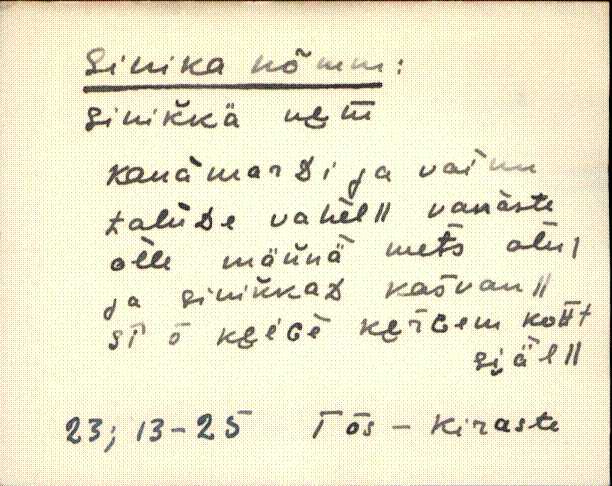 Sinika nõmm:
sinikkä nem̄
kanàmarDi ja vainu
taluDe vahèl|| vanàste
òlle männä mets olu|
ja sinikkaD kašvan||
sī ō keiGè ker̄Gem koht
siäl||
23; 13-25 Tõs - Kiraste